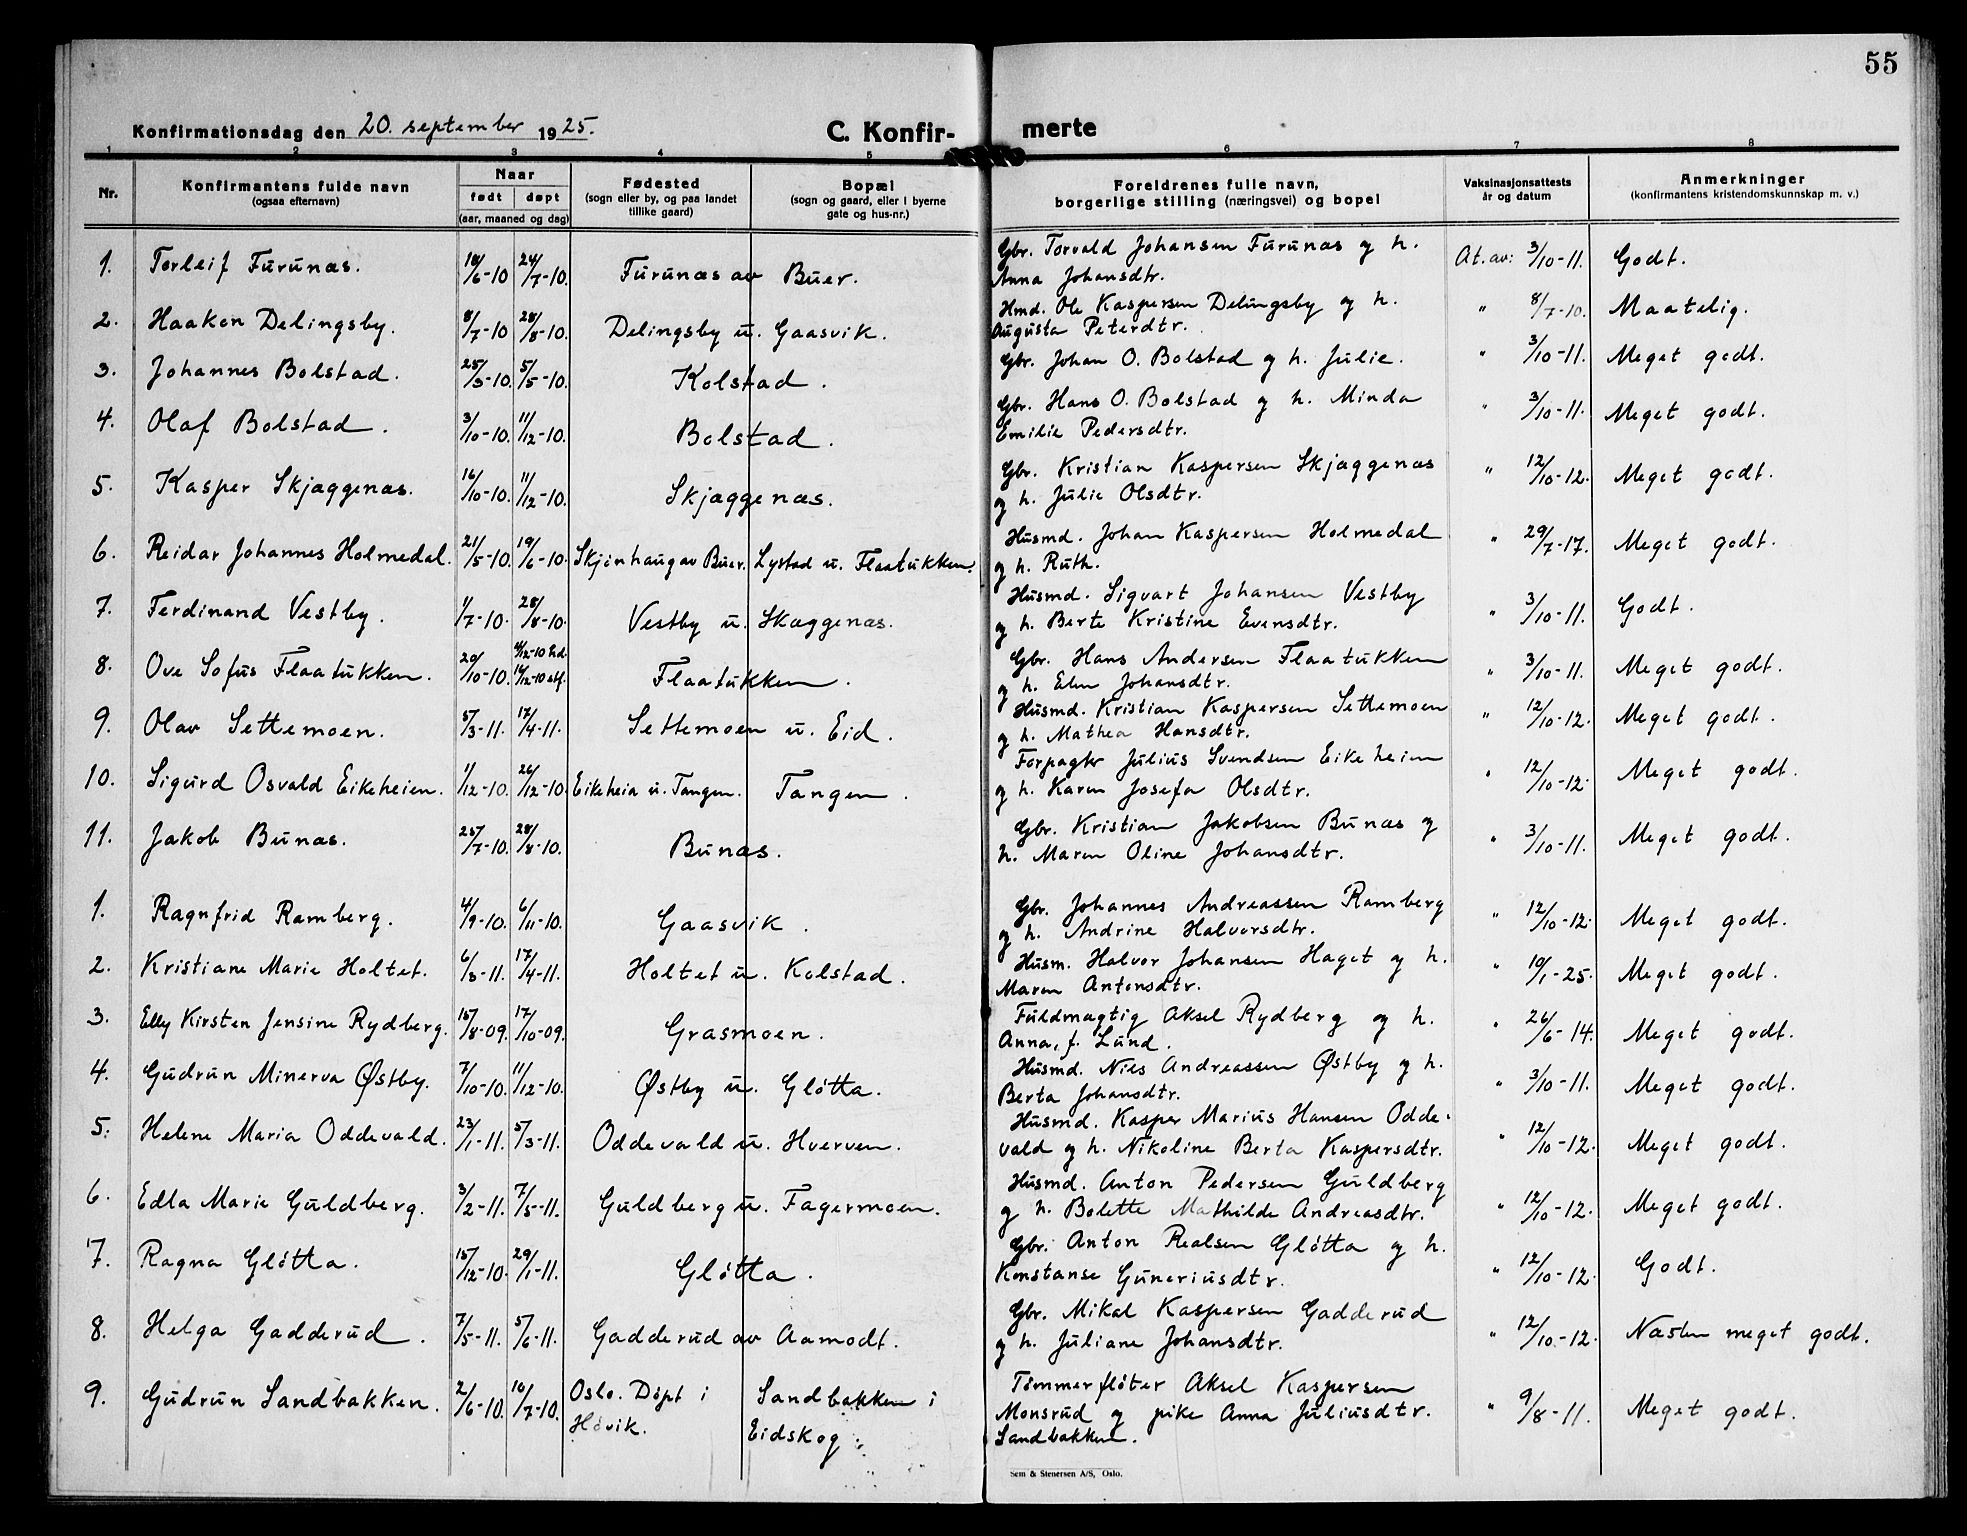 55
Konfirmationsdag den 20. september 1925.
C. Konfir- merte
1 2 3 4 5 6 7 8
Nr. Konfirmantens fulde navn (ogsaa efternavn) Naar født døpt (aar, maaned og dag) Fødested (sogn eller by, og paa landet tillike gaard) Bopæl (sogn og gaard, eller i byerne gate og hus-nr.) Foreldrenes fulle navn, borgerlige stilling (næringsvei) og bopel Vaksinasjonsattests år og datum Anmerkninger (konfirmantens kristendomskunnskap m. v.)
1. Torleif Furunæs. 18/6-10 24/7-10. Furunæs av Buer. Gbr. Torvald Johansen Furunæs og h. At. av: 3/10-11. Godt.
Anna Johansdtr.
2. Haakon Delingsby. 8/7-10 28/8-10. Delingsby u. Gaasvik. Hmd. Ole Kaspersen Delingsby og h. " 8/7-10. Maatelig.
Augusta Petersdtr.
3. Johannes Bolstad. 25/3-10. 5/5-10. Kolstad. Gbr. Johan O. Bolstad og h. Julie. " 3/10-11. Meget godt.
4. Olaf Bolstad. 3/10-10. 11/12-10. Bolstad. Gbr. Hans O. Bolstad og h. Minda " 3/10-11. Meget godt.
Emilie Pedersdtr.
5. Kasper Skjæggenæs. 16/10-10. 11/12-10. Skjæggenæs. Gbr. Kristian Kaspersen Skjæggenæs " 12/10-12. Meget godt.
og h. Julie Olsdtr.
6. Reidar Johannes Holmedal. 21/5-10. 19/6-10. Skjønhaug av Buer. Lystad u. Flaatukken. Husmd. Johan Kaspersen Holmedal " 29/7-17. Meget godt.
og h. Ruth.
7. Ferdinand Vestby. 1/7-10. 28/8-10. Vestby u. Skæggenæs. Husmd. Sigvart Johansen Vestby " 3/10-11. Godt.
og h. Berte Kristine Evensdtr.
8. Ove Sofus Flaatukken. 20/10-10. 4/12-10 hd. 14/12-10 stf. Flaatukken. Gbr. Hans Andersen Flaatukken " 3/10-11. Meget godt.
og h. Elen Johansdtr.
9. Olav Settemoen. 5/3-11. 17/4-11. Settemoen u. Eid. Husmd. Kristian Kaspersen Settemoen " 12/10-12. Meget godt.
og h. Mathea Hansdtr.
10. Sigurd Osvald Eikeheien. 1/12-10. 26/12-10. Eikeheia u. Tangen. Tangen. Forpagter Julius Svendsen Eikeheien " 12/10-12. Meget godt.
og h. Karen Josefa Olsdtr.
11. Jakob Bunæs. 25/7-10. 28/8-10. Bunæs. Gbr. Kristian Jakobsen Bunæs og " 3/10-11. Meget godt.
h. Maren Oline Johansdtr.
1. Ragnfrid Ramberg. 4/9-10. 6/11-10. Gaasvik. Gbr. Johannes Andreassen Ramberg " 12/10-12. Meget godt.
og h. Andrine Halvorsdtr.
2. Kristiane Marie Holtet. 6/3-11. 17/4-11. Holtet u. Kolstad. Husm. Halvor Johansen Haget og h. " 10/1-25. Meget godt.
Maren Antonsdtr.
3. Elly Kirsten Jensine Rydberg. 15/8-09. 17/10-09. Grasmoen. Fuldmægtig Aksel Rydberg og h. " 26/6-14. Meget godt.
Anna, f. Lund.
4. Gudrun Minerva Østby. 7/10-10. 11/12-10. Østby u. Gløtta. Husmd. Nils Andreassen Østby og h. " 3/10-11. Meget godt.
Berta Johansdtr.
5. Helene Maria Oddevald. 23/1-11. 5/3-11. Oddevald u. Hverven. Husmd. Kasper Marius Hansen Odde- " 12/10-12. Meget godt.
vald og h. Nikoline Berta Kaspersdtr.
6. Edla Marie Guldberg. 3/2-11. 7/5-11. Guldberg u. Fagermoen. Husmd. Anton Pedersen Guldberg " 12/10-12. Meget godt.
og h. Bolette Mathilde Andreasdtr.
7. Ragna Gløtta. 15/12-10. 29/1-11. Gløtta. Gbr. Anton Realsen Gløtta og h. " 12/10-12. Godt.
Konstanse Guneriusdtr.
8. Helga Gadderud. 7/5-11. 5/6-11. Gadderud av Aamodt. Gbr. Mikal Kaspersen Gadderud " 12/10-12. Næsten meget godt.
og h. Juliane Johansdtr.
9. Gudrun Sandbakken. 2/6-10. 10/7-10. Oslo. Døpt i Høvik. Sandbakken i Eidskog. Tømmerfløter Aksel Kaspersen " 9/8-11. Meget godt.
Monsrud og pike Anna Juliusdtr.
Sandbakken.
Sem & Stenersen A/S, Oslo.